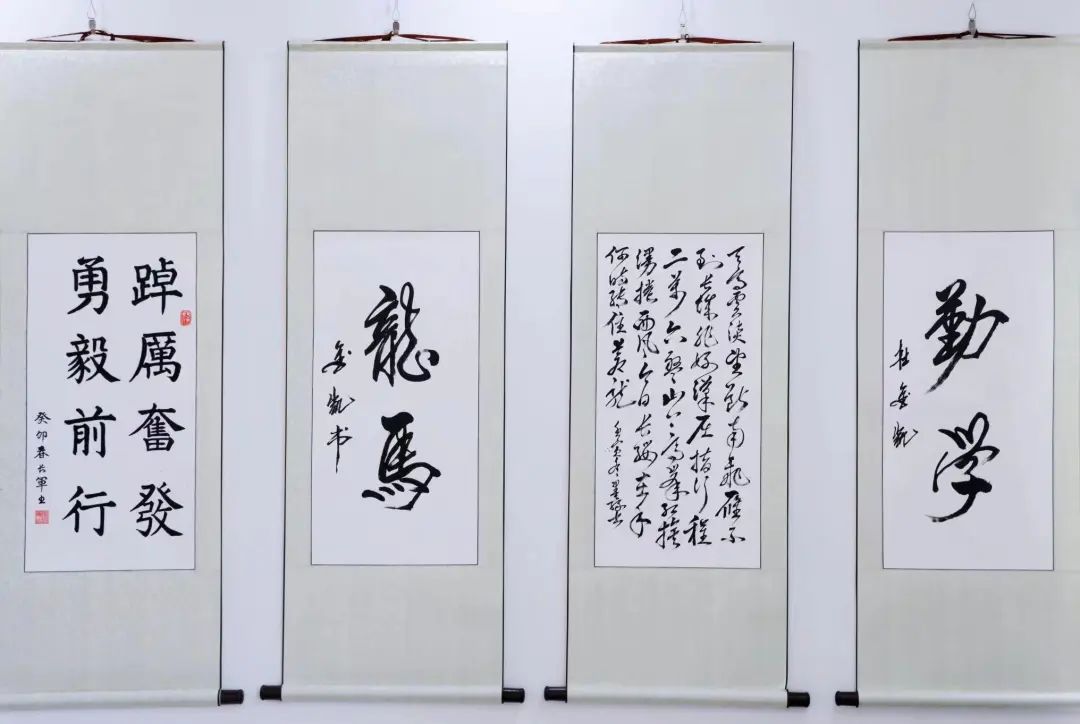 踔厲奮發
勇毅前行
癸卯春长軍书
龍馬
金凱书
天高雲淡望断南飛雁不
到长城非好漢屈指行程
二萬六盘山上高峯红旗
漫捲西风今日长缨在手
何时缚住苍龙 壬寅冬
勤学
杜金凱